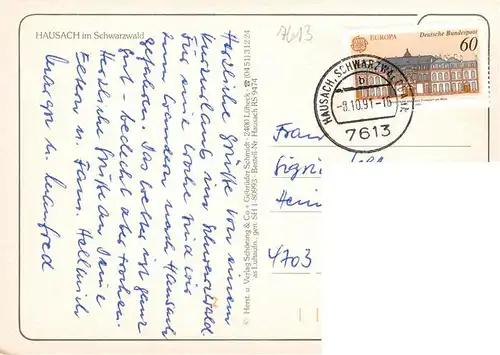 HAUSACH im Schwarzwald
7613
Herzliche Grüße von einem
Kurzurlaub im Schwarzwald.
Für eine Woche sind wir
zum Wandern nach Hausach
gefahren. Das Wetter ist ganz
gut - bedeckt aber trocken.
Herzliche Grüße an Deine
Eltern u. Fam. Hellmich
u. Manfred
© Herst. u. Verlag Schöning & Co + Gebrüder Schmidt · 2400 Lübeck · ☎ (04 51) 3 12 24
as Luftaufn. gen. SH 1-80893 · Bestell-Nr. Hausach RS 9474
EUROPA
Deutsche Bundespost
60
HAUSACH, SCHWARZW
b
-8.10.91-16
7613
Frau
Sigrid
Hein
4703